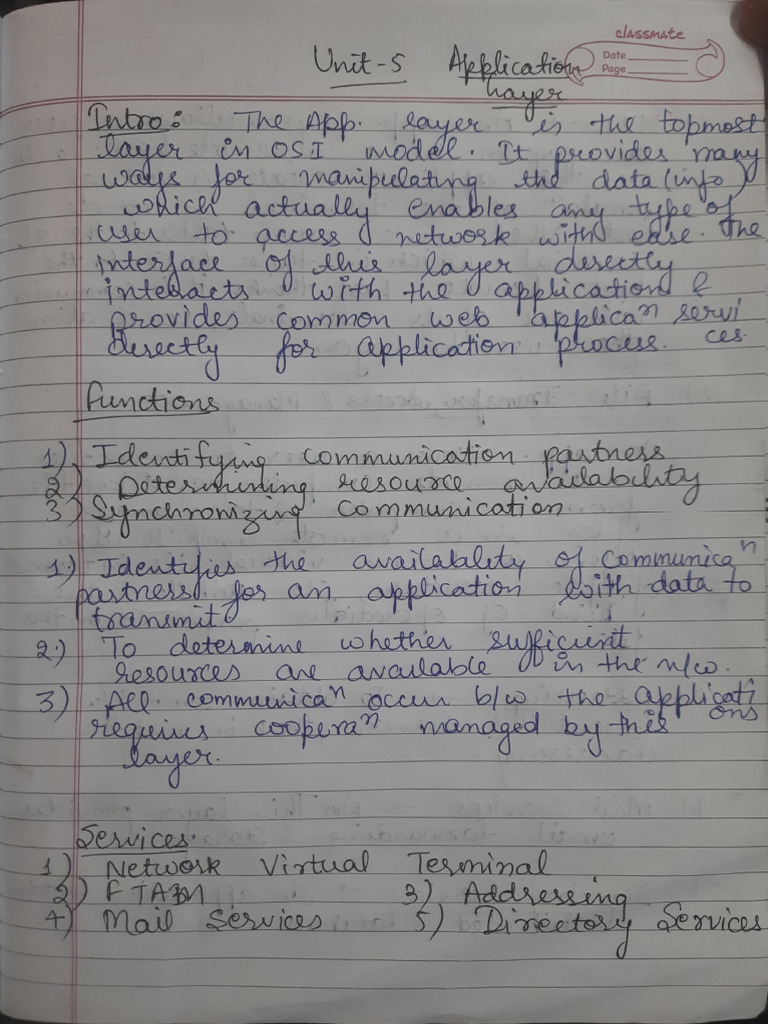 classmate
Date
Page
Unit-5 Application
Layer
Intro: The App. layer is the topmost
layer in OSI model. It provides many
ways for manipulating the data (info)
which actually enables any type of
user to access network with ease. The
interface of this layer directly
interacts with the application &
provides common web applicaⁿ servi
directly for application process. ces.
Functions
1) Identifying communication partness
2) Determining resource availability
3) Synchronizing communication
1.) Identifies the availability of communicaⁿ
partness for an application with data to
transmit
2.) To determine whether sufficient
resources are available in the n/w.
3) All communicaⁿ occur b/w the applicati
requires cooperaⁿ managed by this ons
layer.
Services.
1) Network Virtual Terminal
2) FTAM 3) Addressing
4) Mail Services 5) Directory Services